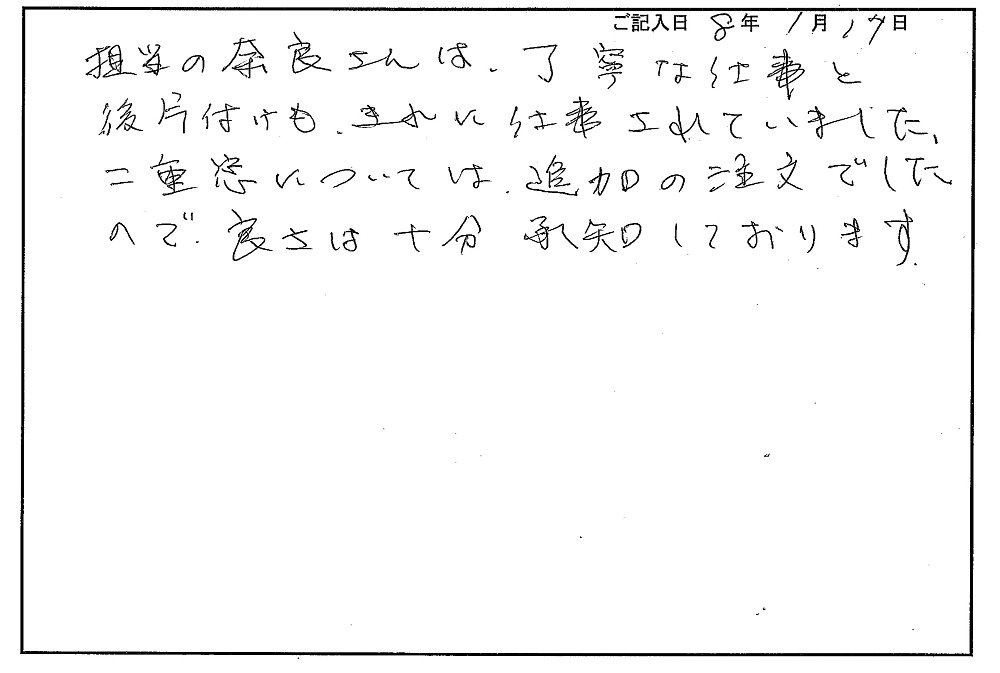 ご記入日 8年 1月17日
担当の奈良さんは、丁寧な仕事と
後片付けも、きれいに仕事されていました、
二重窓については、追加の注文でした
ので、良さは十分承知しております。